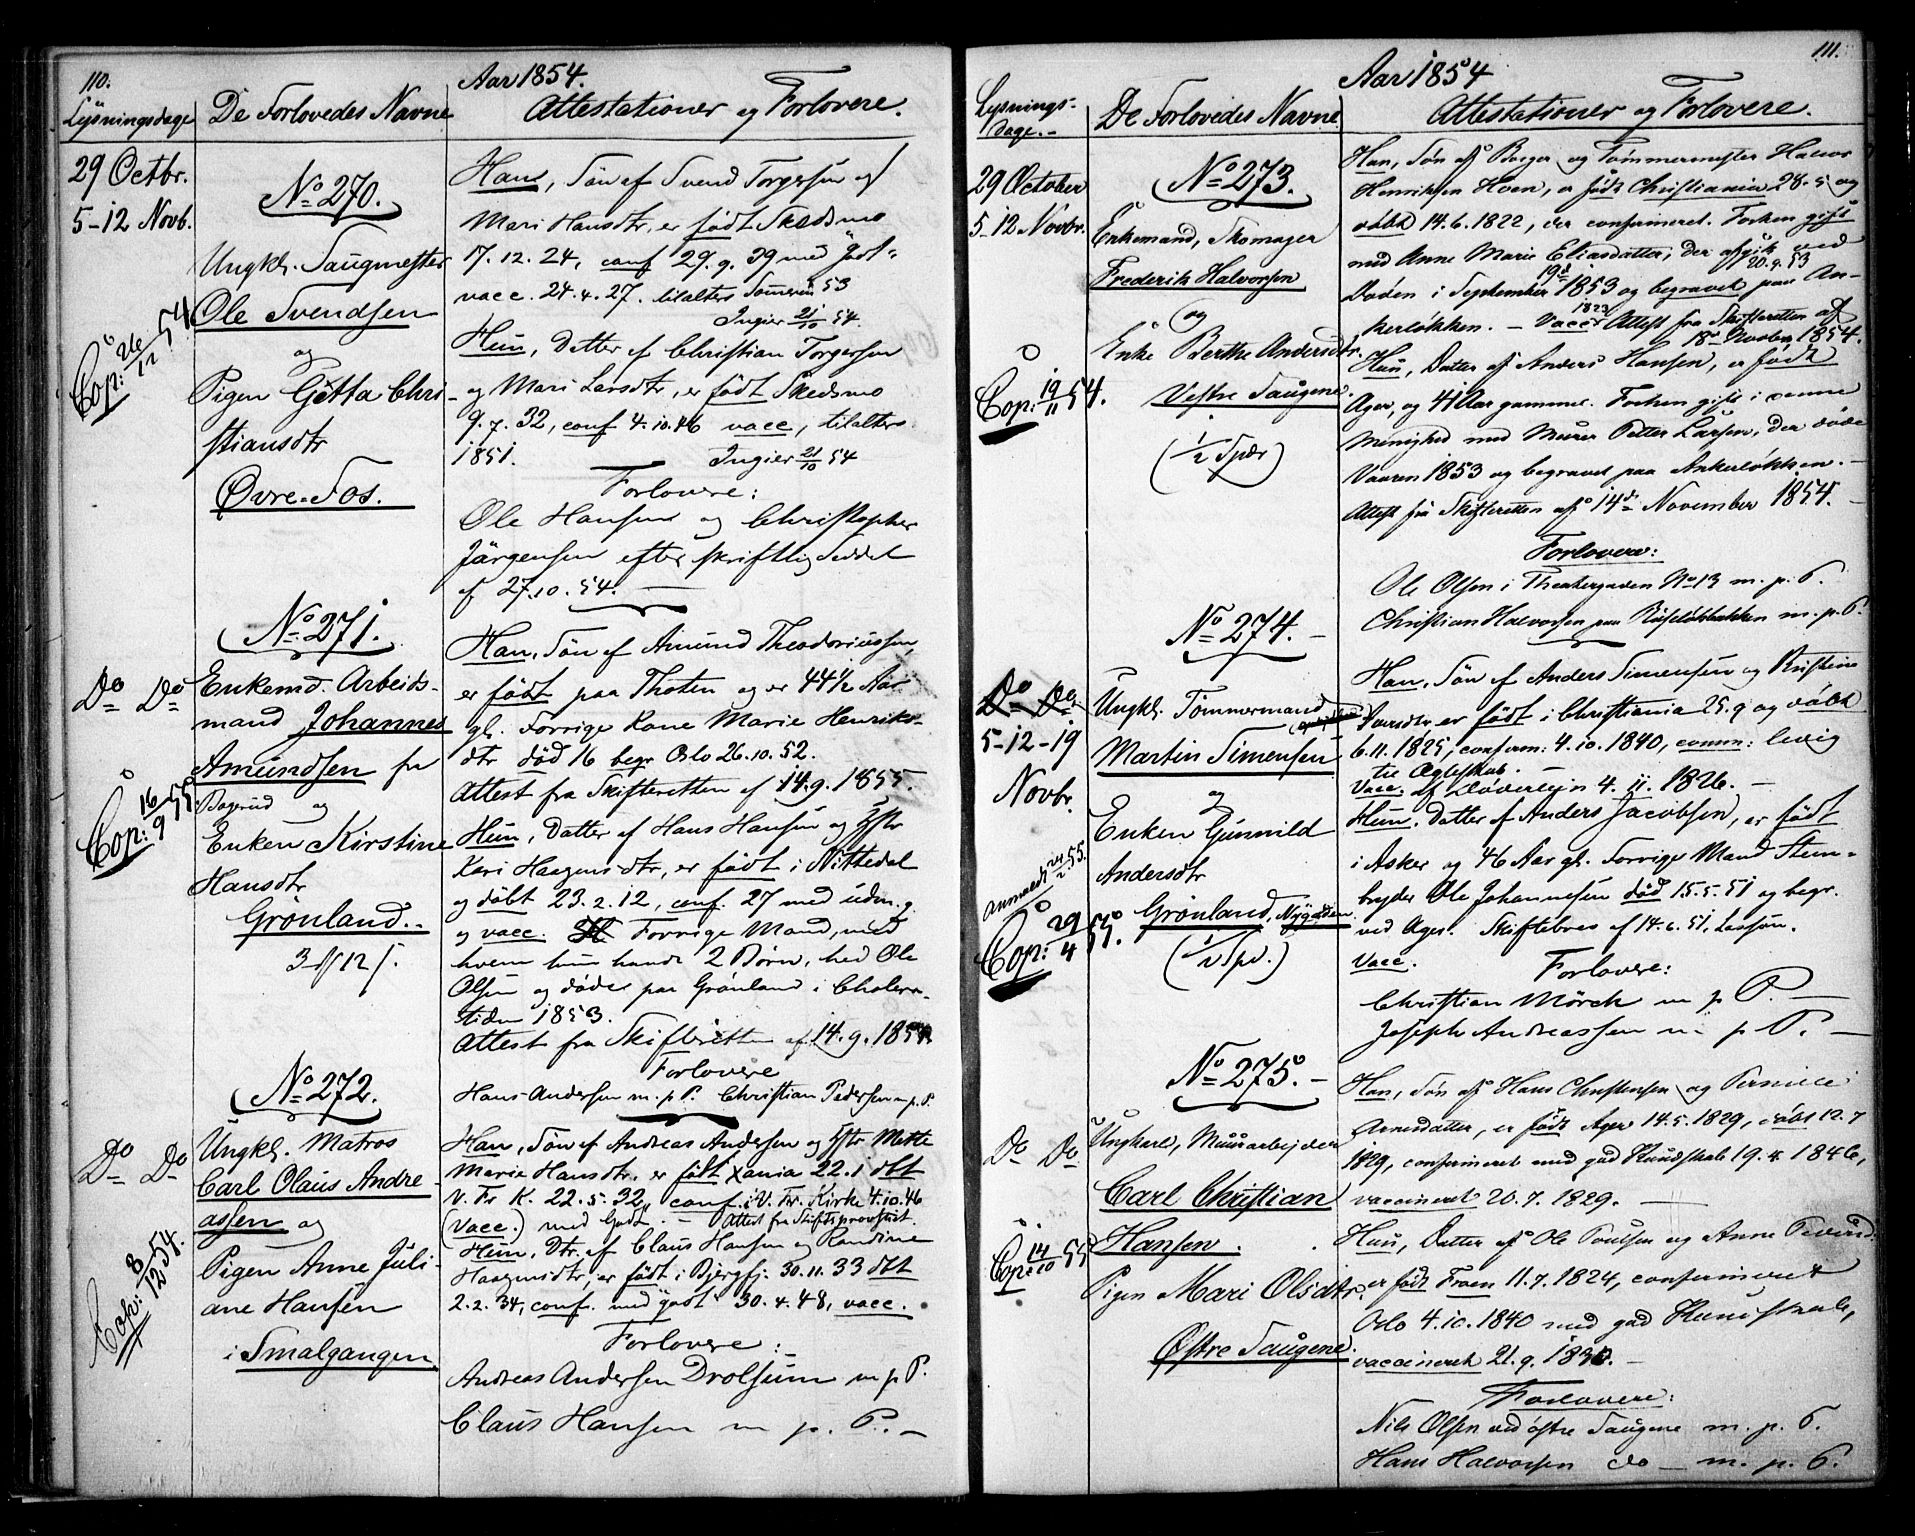 110.
Aar 1854.
Lysningsdage
De Forlovedes Navne
Attestationer og Forlovere.
29 Octbr.
5-12 Novb.
No 270.
Ungkl. Saugmester
Ole Svendsen
og
Pigen Gitta Chri-
stiansdtr
Øvre-Fos.
Cop: 26/12 54
Hans, Søn af Svend Torgersen og
Mari Hansdtr, er født Skedsmo
17.12.24, conf 29.9.39 med godt
vacc. 24.4.27. tilalters Sommeren 53
Ingier 21/10 54.
Hun, Datter af Christian Torgersen
og Mari Larsdtr, er født Skedsmo
9.7.32, conf 4.10.46 vacc, tilalters
1851. Ingier 21/10 54
Forlovere:
Ole Hansen og Christopher
Jørgensen efter skriftlig Seddel
af 27.10.54.
No 271.
Do Do
Enkemd. Arbeids-
mand Johannes
Amundsen fra
Bagerud og
Enken Kirstine
Hansdtr
Grønland.
3 ß 12 ſ.
Cop: 16/9 55
Han, Søn af Amund Theodoriussen,
er født paa Thoten og er 44 1/2 Aar
gl. Forrige Kone Marie Henriks-
dtr død 16 begr Oslo 26.10.52.
Attest fra Skifteretten af 14.9.1855.
Hun, Datter af Hans Hansen og Hstr
Kari Haagensdtr, er født i Nittedal
og døbt 23.2.12, conf. 27 med udm. g.
og vacc. Forrige Mand, med
hvem hun havde 2 Børn, hed Ole
Olsen og døde paa Grønland i Cholera-
tiden 1853.
Attest fra Skifteretten af 14.9.185
Forlovere
Hans Andersen m.p.P. Christian Pedersen m.p.P
No 272.
Do Do
Ungkl. Matros
Carl Olaus Andre-
assen og
Pigen Anne Juli-
ane Hansen
i Smalgangen
Cop: 8/12 54.
Han, Søn af Andreas Andersen og Hstr Mette
Marie Hansdtr. er født Xania 22.1 dbt
V. Fr K. 22.5.32, conf. i V. Fr. Kirke 4.10.46
(vacc.) med Godt. - Attest fra Stiftsprovstiet.
Hun, Dtr. af Claus Hansen og Randine
Haagensdtr, er født i Bjergfj. 30.11.33 dbt
2.2.34, conf. med "godt" 30.4.48, vacc.
Forlovere:
Andreas Andersen Drolsum m p P.
Claus Hansen m. p. P. -
111.
Aar 1854
Lysnings-
dage.
De Forlovedes Navne
Attestationer og Forlovere.
29 October
5-12 Novbr.
No 273.
Enkemand, Skomager
Frederik Halvorsen
og
Enke Berthe Andersdtr.
Vestre Saugene.
(1/2 Spd)
Cop: 19/11 54.
Han, Søn af Borger og Tømmermester Halvor
Henriksen Hoen, er født Christiania 28.5 og
døbt 14.6.1822, der confirmeret. Forhen gift
med Anne Marie Eliasdatter, der afgik ved
Døden i September 19d 1853 og begravet 20.9.53 paa An-
kerløkken. - Vacc 1823 Attest fra Skifteretten af
18de Novbr 1854.
Hun, Datter af Anders Hansen, er født
Ager, og 41 Aar gammel. Forhen gift i denne
Menighed med Murer Petter Larsen, der døde
Vaaren 1853 og begravet paa Ankerløkken. -
Attest fra Skifteretten af 14d November 1854.
Forlovere:
Ole Olsen i Theatergaden No 13 m.p.P.
Christian Halvorsen paa Røseløkbakken m.p.P.
No 274.
Do Do
5-12-19
Novbr.
Ungkl. Tømmermand
Martin Simensen
og
Enken Gunnild
Andersdtr
Grønland, Nygaden.
(1/2 Spd.)
anmeldt 24/2 55.
Cop: 29/4 55.
Han, Søn af Anders Simensen og Kristine
Larsdtr er født i Christiania 25.9 og døbt
6.11.1825, confirm: 4.10.1840, comm: ledig
til Ægteskab.
Vacc. af Døderlejn 4.11.1826. -
Hun, Datter af Anders Jacobsen, er født
i Asker og 46 Aar gl. Forrige Mand Sten-
bryder Ole Johannesen død 15.5.51 og begr.
ved Ager. Skiftebrev af 14.6.51, Lasson.
Vacc.
Forlovere:
Christian Mörch m p P. -
Joseph Andreassen m p P. -
No 275.
Do Do
Ungkarl, Muurarbejder
Carl Christian
Hansen.
Pigen Mari Olsdtr.
Østre Saugene.
Cop: 14/10 55
Han, Søn af Hans Christensen og Pernille
Arnesdatter, er født Ager 14.5.1829, døbt 12.7
1829, confirmeret med god Kundskab 19.4.1846,
vaccineret 20.7.1829.
Hun, Datter af Ole Poulsen og Anne Pedersd.
er født Froen 11.7.1824, confirmeret
Oslo 4.10.1840 med god Kundskab,
vaccineret 21.9.1830. -
Forlovere:
Nils Olsen ved østre Saugene m.p.P.
Hans Halvorsen do - m.p.P.